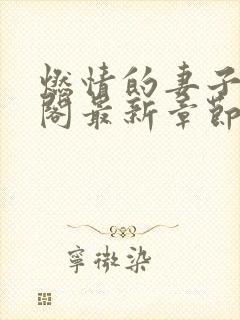 燃情的妻子
閣最新章節
寧微染